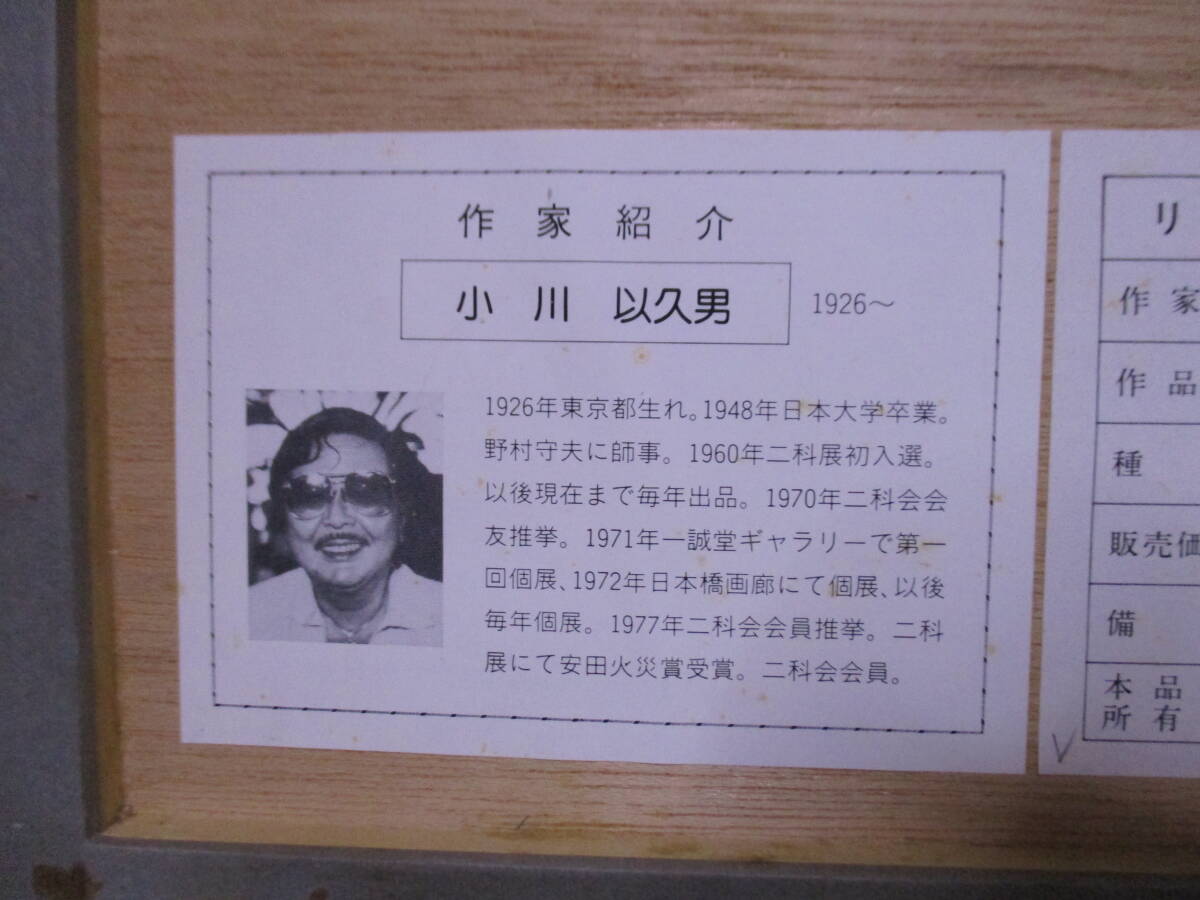 作家紹介
小川 以久男 1926～
1926年東京都生れ。1948年日本大学卒業。
野村守夫に師事。1960年二科展初入選。
以後現在まで毎年出品。1970年二科会会
友推挙。1971年一誠堂ギャラリーで第一
回個展、1972年日本橋画廊にて個展、以後
毎年個展。1977年二科会会員推挙。二科
展にて安田火災賞受賞。二科会会員。
リ
作家
作品
種
販売価
備
本品
所有